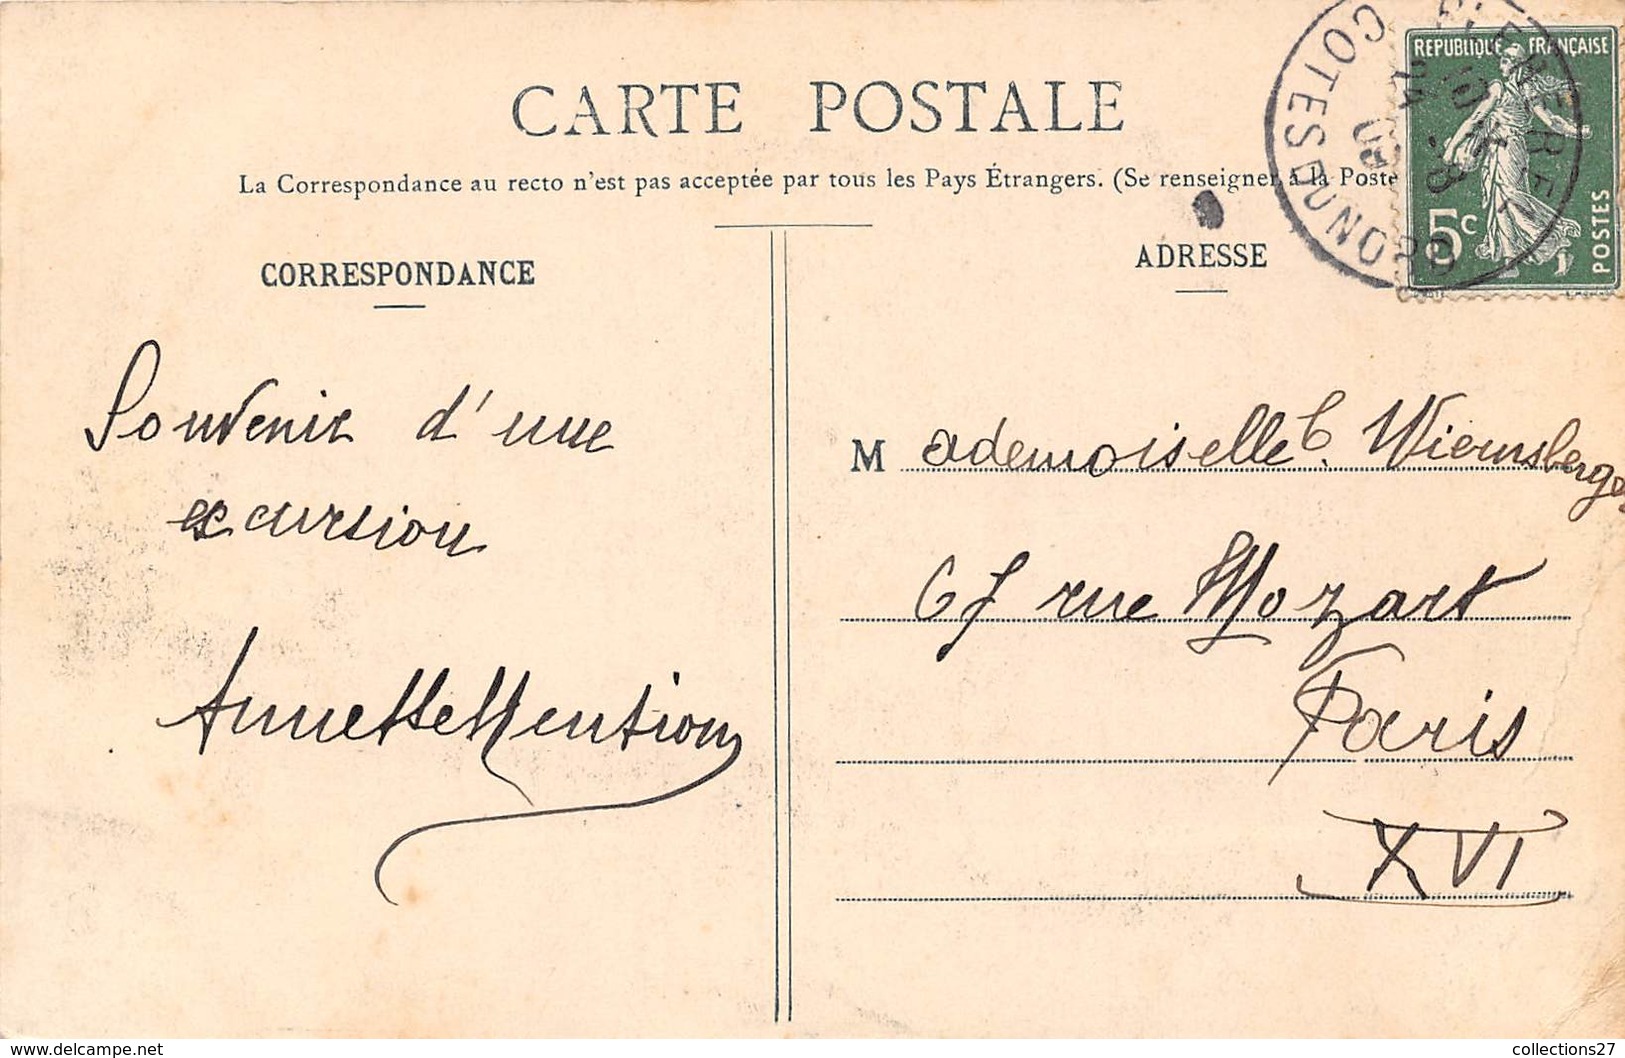 CARTE POSTALE
La Correspondance au recto n'est pas acceptée par tous les Pays Étrangers. (Se renseigner à la Poste
CORRESPONDANCE
ADRESSE
REPUBLIQUE FRANÇAISE
5c
POSTES
COTES DU NORD
08
Souvenir d'une
excursion
Annette Mention
Mademoiselle C. Wiernsberger
67 rue Mozart
Paris
XVI
delcampe.net
collections27